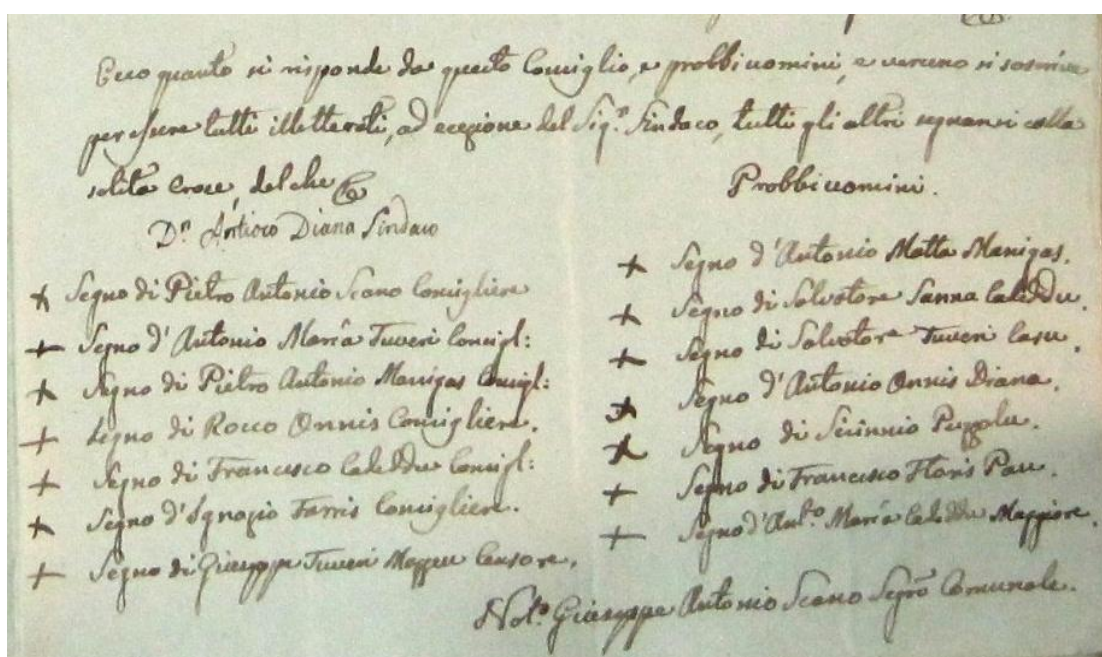 Ecco quanto si risponde da questo Consiglio, e probbi uomini, e veruno si sosscrive
per essere tutti illetterati, ad ecezione del Sig.r Sindaco, tutti gli altri segnansi colla
solita Croce, del che
D.n Antioco Diana Sindaco
Segno di Pietro Antonio Scano Consigliere
Segno d'Antonio Maria Tuveri Consigl:
Segno di Pietro Antonio Manigas Consigl:
Segno di Rocco Onnis Consigliere.
Segno di Francesco Caleddu Consigl:
Segno d'Ignazio Farris Consigliere.
Segno di Giuseppe Tuveri Mappeu Censore.
Probbi uomini.
Segno d'Antonio Matta Manigas.
Segno di Salvatore Sanna Caleddu.
Segno di Salvatore Tuveri Casu.
Segno d'Antonio Onnis Diana.
Segno di Sisinnio Puzzolu.
Segno di Francesco Floris Pau.
Segno d'Ant.o Maria Caleddu Maggiore.
Not.o Giuseppe Antonio Scano Segro Comunale.